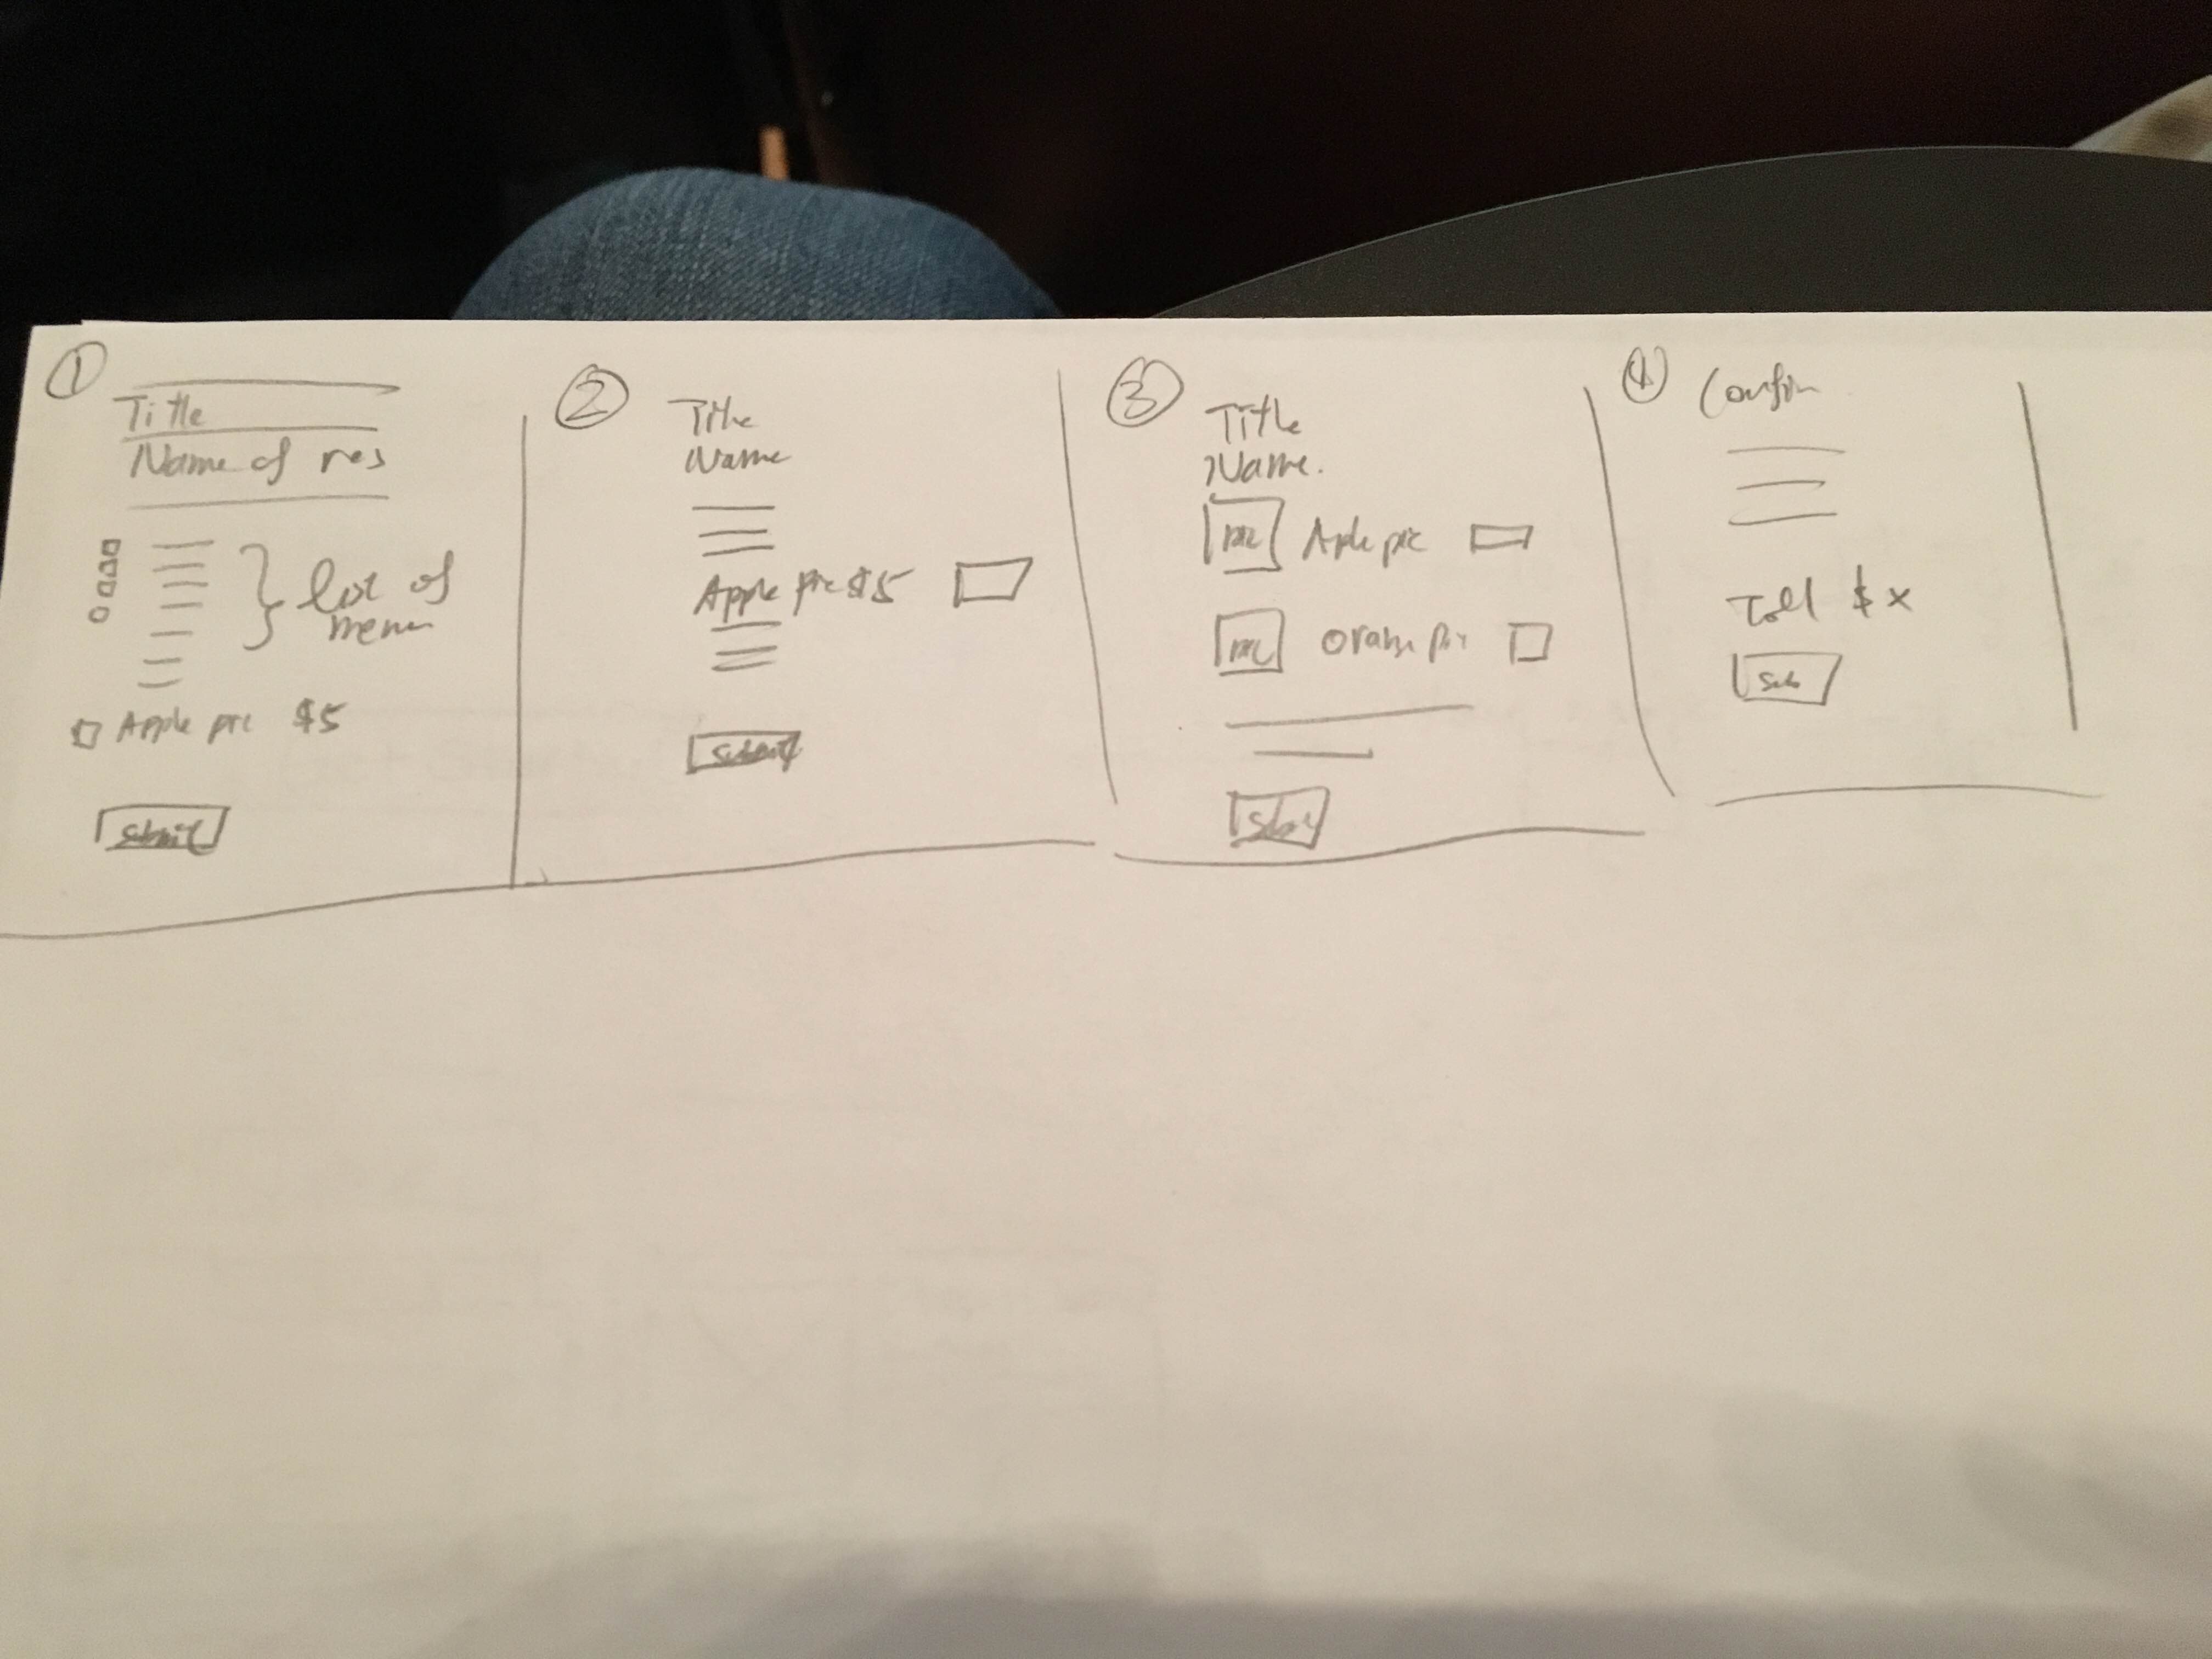 1
Title
Name of res
} list of
menu
Apple pie $5
Submit
2
Title
Name
Apple pie $5
Submit
3
Title
Name.
Apple pie
4
Confirm
Total $ x
Sub